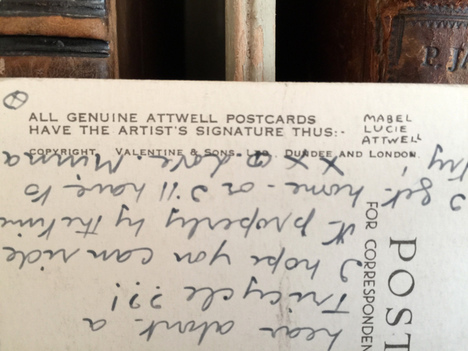 ALL GENUINE ATTWELL POSTCARDS
HAVE THE ARTIST'S SIGNATURE THUS:-
MABEL
LUCIE
ATTWELL
COPYRIGHT. VALENTINE & SONS. LTD. DUNDEE AND LONDON.
POST
FOR CORRESPONDEN
hear about a
Tricycle ??!
I hope you can ride
it properly by the time
I get home - or I'll have to
try! x x Love. Minna